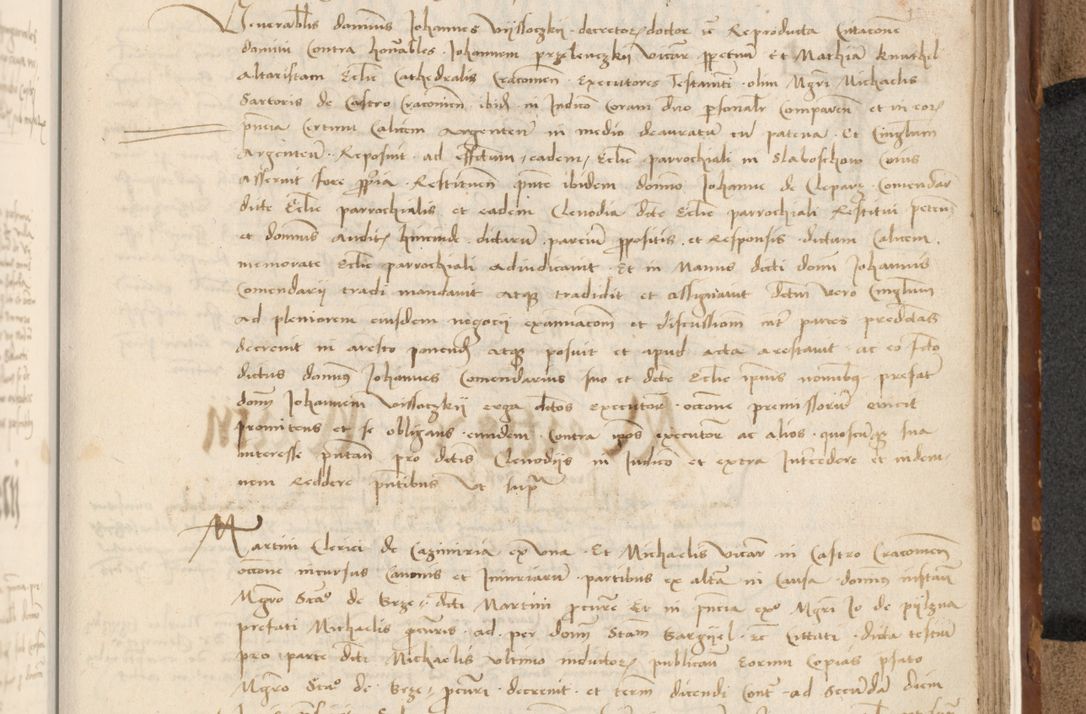 Venerabilis dominus Johannes Wyssoczkij decretor doctor in Reproducta Citacione
domini Contra honorabiles Johannem przelenczkij vicarium perpetuum Et Mathiam Knuthel
altaristam Ecclie Cathedralis Cracovien Executores Testamenti olim Mgri Michaelis
Sartoris de Castro Cracovien ibidem in Judicio Coram dno personaliter Comparens et in eor
pntia Certum Calicem argenteum in medio deauratum cum patena Et Cingulum
argenteum Reposuit ad effectum eadem Ecclie parrochiali in Slaboschow Cuius
asseruit fore propria Restituen pnte ibidem domino Johanne de Clepardz Comendario
dicte Ecclie parrochialis et eadem Clenodia dicte Ecclie parrochiali Restitui peten
et dominus auditor hincinde dictarum parcium propositis et Responsis dictum Calicem
memorate Ecclie parrochiali adiudicavit Et in Manus dicti domini Johannis
Comendarij tradi mandavit atque tradidit et assignavit dictum vero Cingulum
ad pleniorem eiusdem negocij examinacionem et discussionem inter partes predictas
decrevit in aresto ponendum atque posuit et apud acta arestavit ac eo facto
dictus dominus Johannes Comendarius suo et dicte Ecclie ipius nominibus prefatum
domin Johannem Wissoczkij erga dictos executores occasione premissorum evicit
promittens et se obligans eundem Contra ipos executores ac alios quoscumque sua
interesse putantes pro dictis Clenodijs in Judicio et extra Intercedere et indem-
nem Reddere pntibus vt supra
Martini Clerici de Cazimiria ex vna Et Michaelis vicarii in Castro Cracovien
occone incursus Canonis et Iniuriarum partibus ex altera in Causa dominus instan
Mgro Stano de Brze dicti Martini procure Et in pntia exo Mgri Jo de pijlzna
prefati Michaelis procuris ad per domin Stan Gargijel Citati dicta testium
pro parte dicti Michaelis vltimo inductor publicavit Eorum Copias pfato
Mgro Stano de Brze procuri decrevit et termin dicendi Contra ad Secundam diem